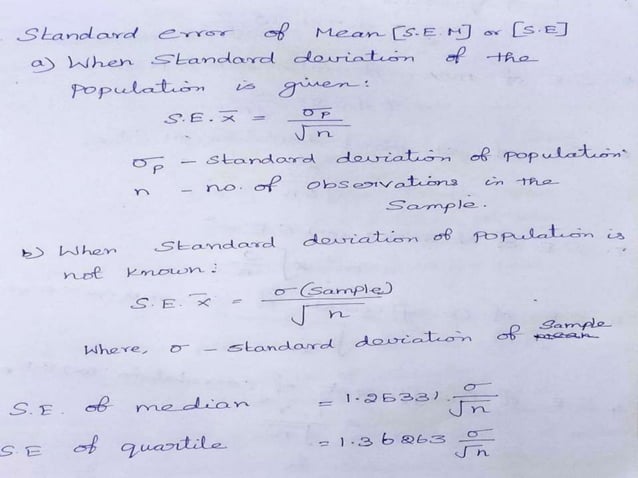 Standard error of Mean [S.E.M] or [S.E]
a) When Standard deviation of the
population is given:
S.E. x̄ = σp / √n
σp – Standard deviation of population
n – no. of observations in the
Sample.
b) When Standard deviation of population is
not known:
S.E. x̄ = σ (sample) / √n
Where, σ – standard deviation of Sample
S.E. of median = 1.25331 σ / √n
S.E of quartile = 1.36263 σ / √n